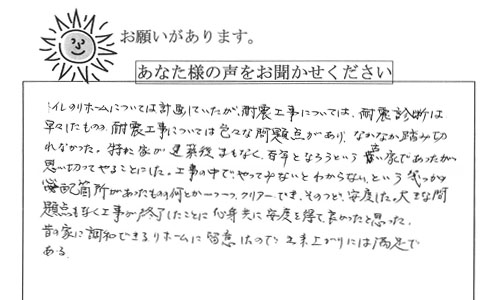 お願いがあります。
あなた様の声をお聞かせください
トイレのリホームについては計画していたが、耐震工事については、耐震診断は
早々したものの、耐震工事については色々な問題点があり、なかなか踏み切
れなかった。特に家が建築後まもなく、百年となろうという古い家であったが
思い切ってやることにした。工事の中で、やってみないとわからないという
心配箇所があったものの何とか一つ一つ、クリアーでき、そのつど、安堵した。大きな問
題点もなく工事が終了したことに心身共に安堵を得て良かったと思った。
昔の家に調和できるリホームに留意したので出来上がりには満足で
ある。